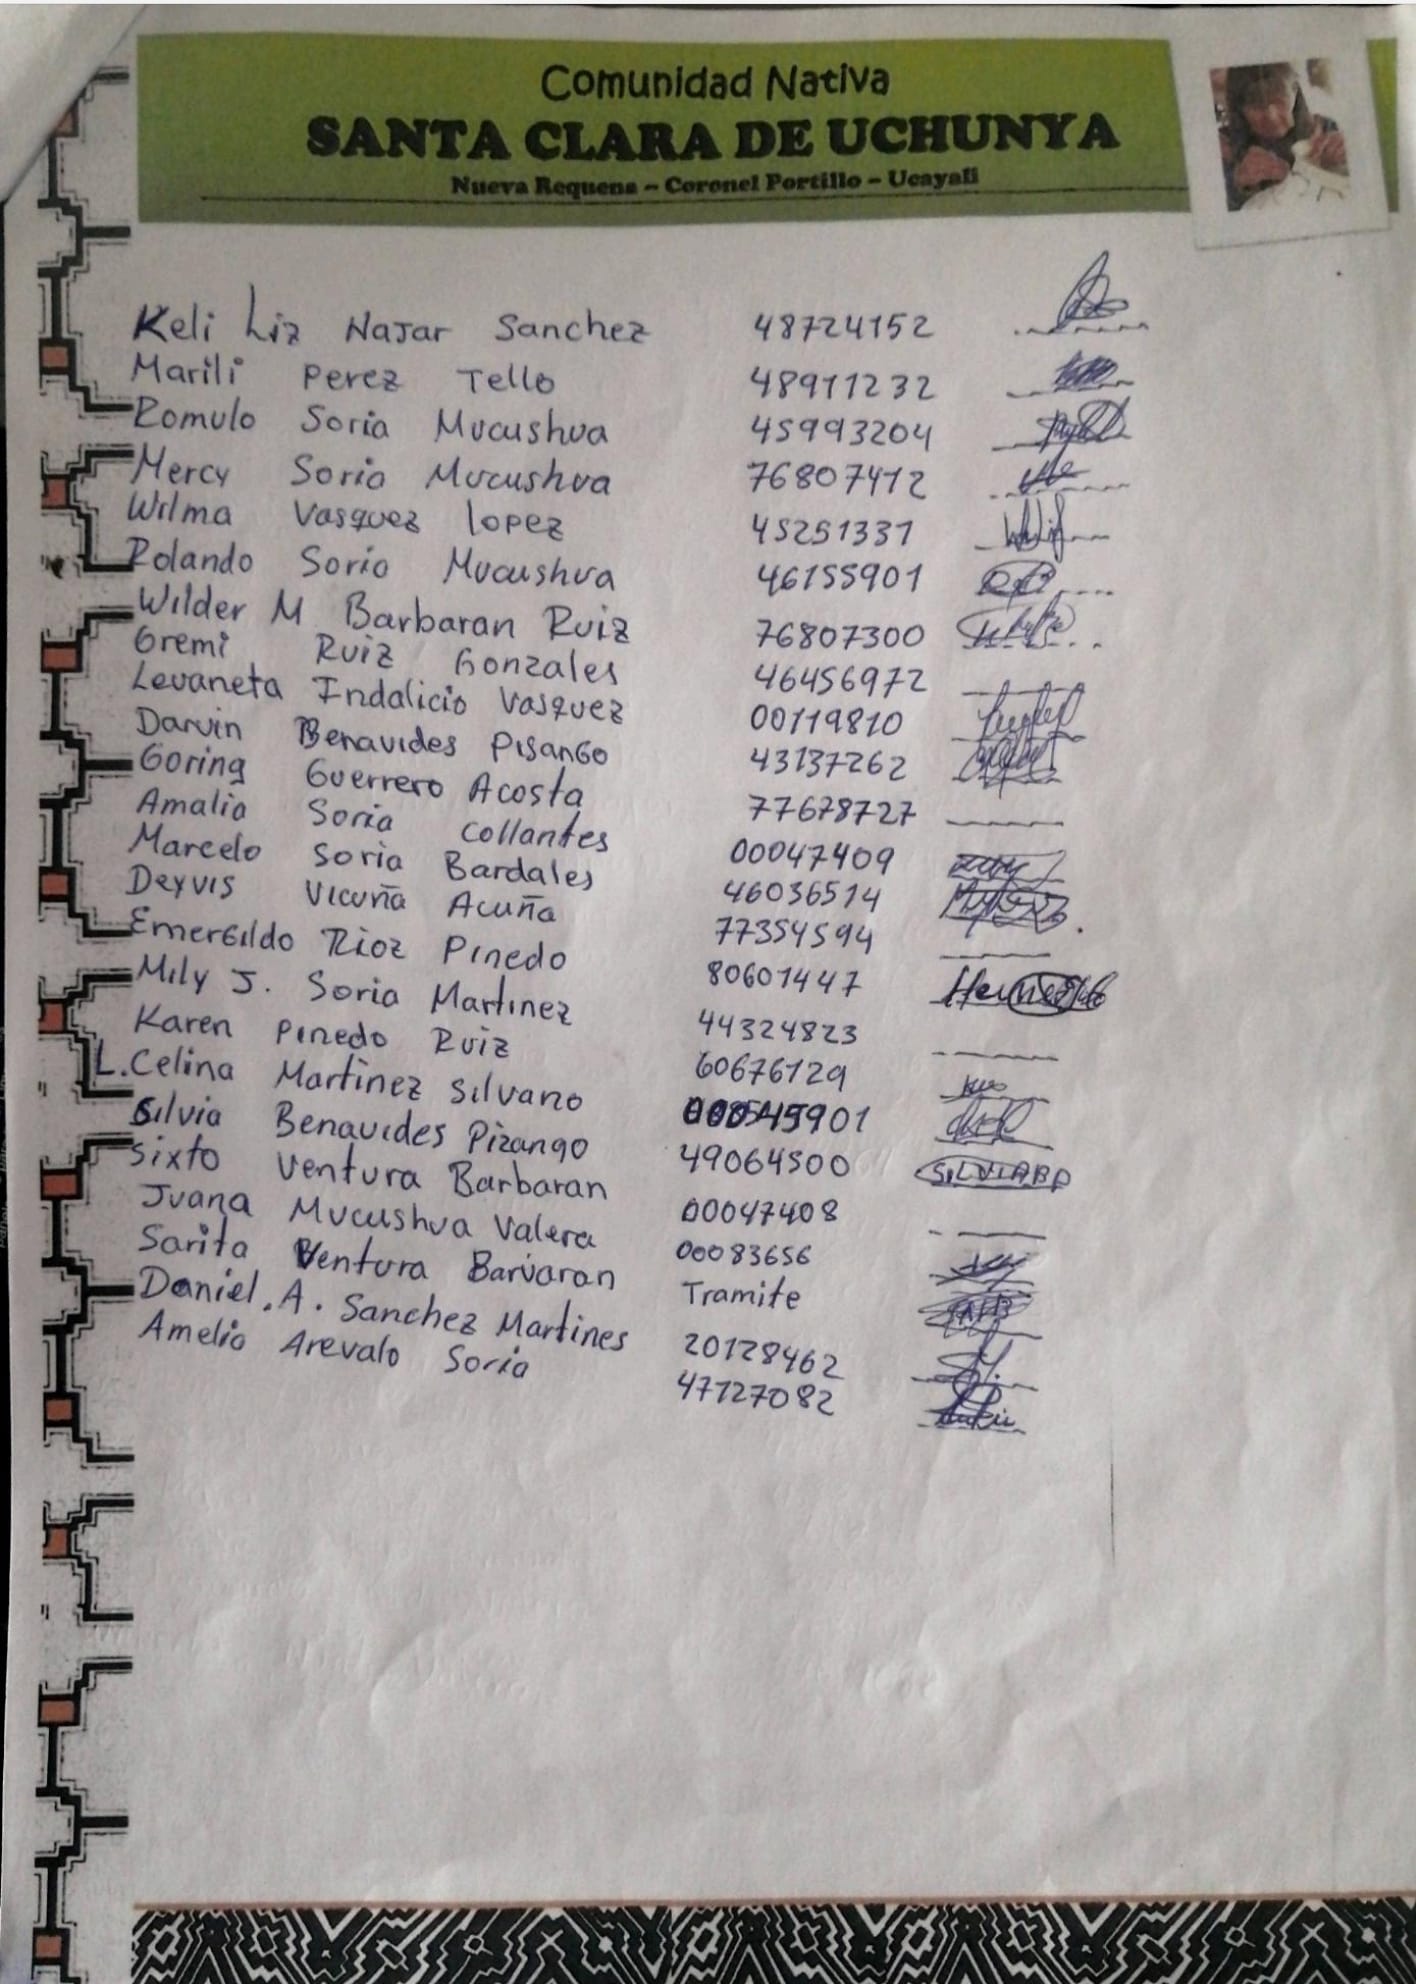 Comunidad Nativa
SANTA CLARA DE UCHUNYA
Nueva Requena – Coronel Portillo – Ucayali
Keli Liz Najar Sanchez 48724152
Marili Perez Tello 48911232
Romulo Soria Mucushua 45993204
Mercy Soria Mucushua 76807412
Wilma Vasquez Lopez 45251331
Rolando Soria Mucushua 46155901
Wilder M Barbaran Ruiz 76807300
Gremi Ruiz Gonzales 46456972
Levaneta Indalicio Vasquez 00119810
Darvin Benavides Pisango 43137262
Goring Guerrero Acosta 77678727
Amalia Soria Collantes 00047409
Marcelo Soria Bardales 46036514
Deyvis Vicuña Acuña 77354594
Emergildo Rioz Pinedo 80601447
Mily J. Soria Martinez 44324823
Karen Pinedo Ruiz 60676129
L. Celina Martinez Silvano
Silvia Benavides Pizango 49064500 SILVIABP
Sixto Ventura Barbaran 00047408
Juana Mucushua Valera 00083656
Sarita Ventura Barvaran Tramite
Daniel. A. Sanchez Martines 20128462
Amelio Arevalo Soria 47127082